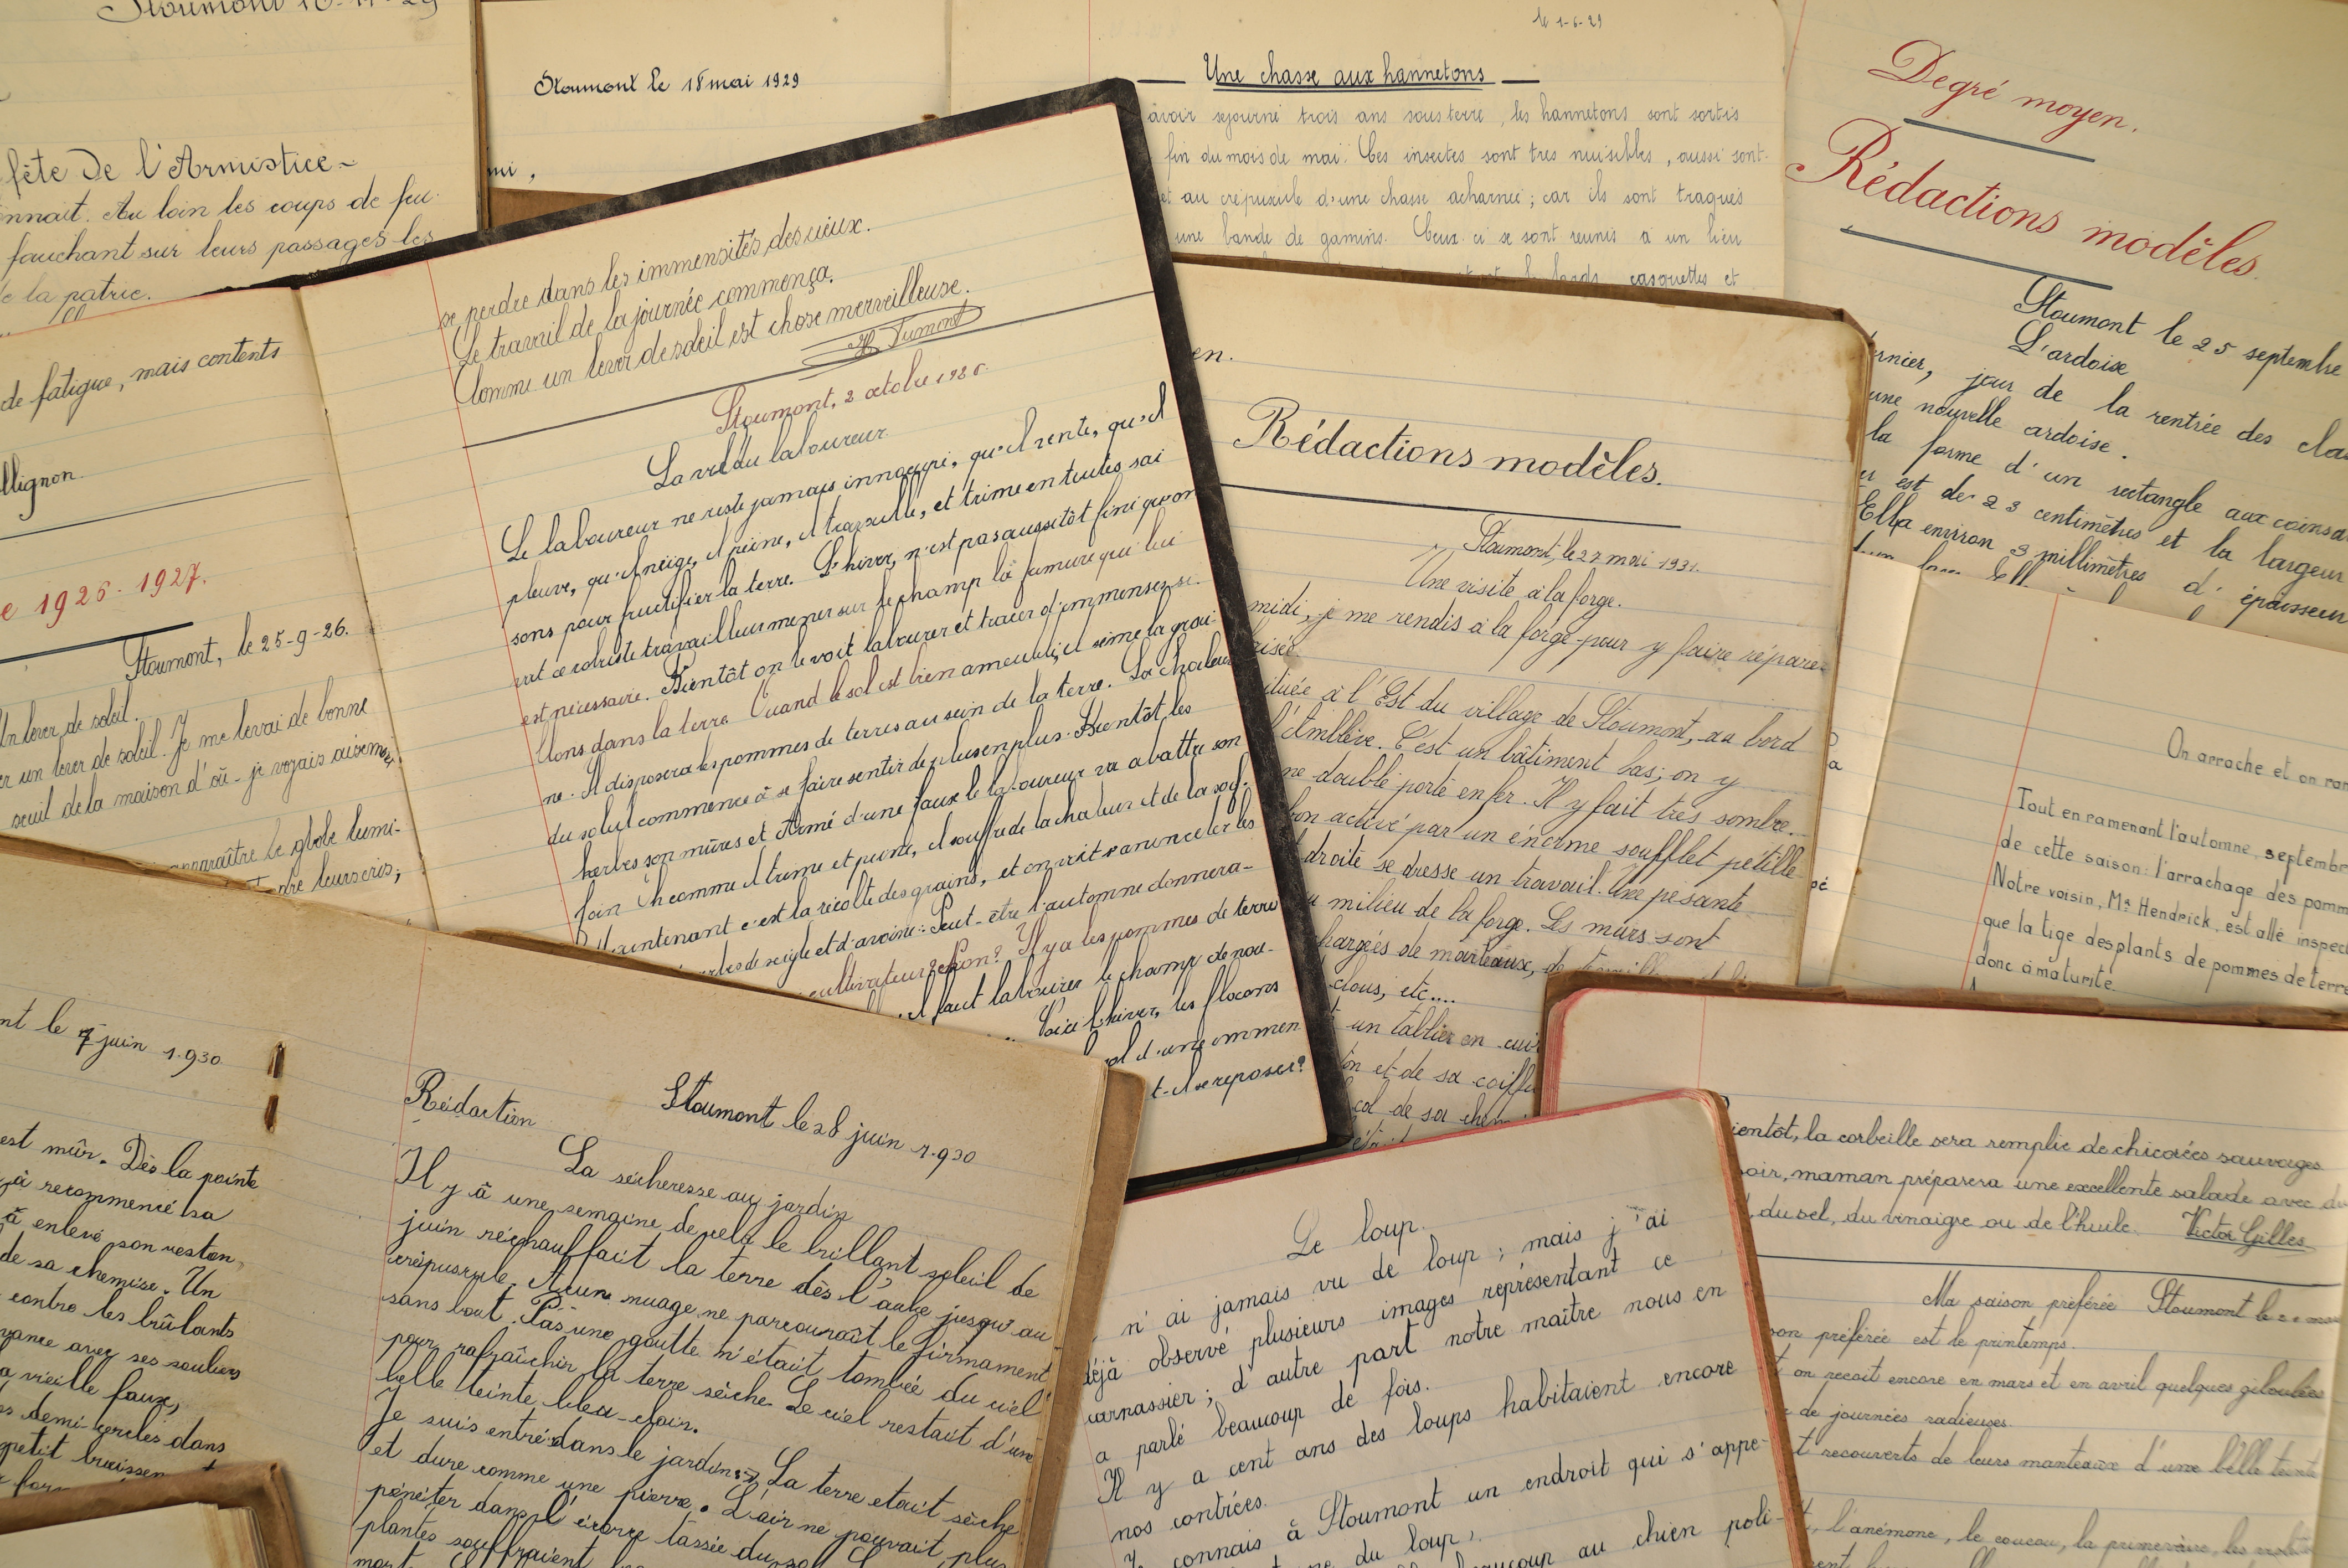 Stoumont 10-11-29
fête De l'Armistice-
nnait. Au loin les coups de feu
fauchant sur leurs passages les
de la patrie.
Stoumont le 18 mai 1929
mi,
le 1-6-29
Une chasse aux hannetons
avoir sejourné trois ans sous terre, les hannetons sont sortis
fin du mois de mai. Ces insectes sont tres nuisibles, aussi sont-
et au crépuscule d'une chasse acharnée; car ils sont traqués
une bande de gamins. Ceux-ci se sont reunis à un lieu
casquettes et
Degré moyen.
Rédactions modèles.
Stoumont le 25 septembre
L'ardoise
rnier, jour de la rentrée des clas
une nouvelle ardoise.
la forme d'un rectangle aux coins a
est de 23 centimètres et la largeur
Ella environ 3 millimètres d'épaisseur
de fatigue, mais contents
llignon.
e 1926-1927.
Stoumont, le 25-9-26.
Un lever de soleil.
er un lever de soleil. Je me levai de bonne
seuil de la maison d'où je voyais aisément
apparaître le globe lumi-
dre leurs cris,
se perdre dans les immensités des cieux.
Le travail de la journée commença.
Comme un lever de soleil est chose merveilleuse.
H. Dumont
Stoumont, 2 octobre 1926.
La vie du laboureur.
Le laboureur ne reste jamais innocupé, qu'il vente, qu'il
pleuve, qu'il neige, il peine, il travaille, et trime en toutes sai
sons pour fructifier la terre. L'hiver, n'est pas aussitôt fini que on
voit ce robuste travailleur mener sur le champ la fumure qui lui
est nécessaire. Bientôt on le voit labourer et tracer d'immenses si-
llons dans la terre Quand le sol est bien ameubli, il sème la grai-
ne. Il disposera les pommes de terres au sein de la terre. La chaleur
du soleil commence à se faire sentir de plus en plus. Bientôt les
herbes son mûres et Armé d'une faux le laboureur va abattre son
foin L'homme il trime et peine, il souffre de la chaleur et de la soif.
Maintenant c'est la récolte des grains, et on voit s'amonceler les
de seigle et d'avoine. Peut-être l'automne donnera-
cultivateur? Non? Il y a les pommes de terre
il faut labourer le champ de nou-
Voici l'hiver, les flocons
d'une immen
t-il se reposer?
en.
Rédactions modèles.
Stoumont, le 27 mai 1931.
Une visite à la forge.
midi, je me rendis à la forge pour y faire réparer
située à l'Est du village de Stoumont, au bord
l'Amblève. C'est un bâtiment bas; on y
ne double porte en fer. Il y fait très sombre.
bon activé par un énorme soufflet pétille
droite se dresse un travail. Une pesante
u milieu de la forge. Les murs sont
chargés de marteaux, de
clous, etc....
un tablier en cuir
on et de sa coiffu
col de sa chem
On arrache et on ram
Tout en ramenant l'automne, septembre
de cette saison: l'arrachage des pomm
Notre voisin, Mr Hendrick, est allé inspect
que la tige des plants de pommes de terre
donc à maturité.
nt le 7 juin 1930
est mûr. Dès la pointe
jà recommencé sa
à enlevé son veston,
de sa chemise. Un
contre les brûlants
vance avec ses souliers
a vieille faux,
s demi-cercles dans
petit bruissem
Rédaction
Stoumont le 28 juin 1930
La sécheresse au jardin
Il y à une semaine de cela le brillant soleil de
juin réchauffait la terre dès l'aube jusqu'au
crépuscule. Aucun nuage ne parcourait le firmament
sans bout. Pas une goutte n'était tombée du ciel
pour rafraîchir la terre sèche. Le ciel restait d'une
belle teinte bleu-clair.
Je suis entré dans le jardin. La terre etait sèche
et dure comme une pierre. L'air ne pouvait plus
pénéter dans l'écorce tassée du sol.
plantes souffraient
Le loup.
n'ai jamais vu de loup; mais j'ai
déjà observé plusieurs images représentant ce
carnassier; d'autre part notre maître nous en
a parlé beaucoup de fois.
Il y a cent ans des loups habitaient encore
nos contrées.
connais à Stoumont un endroit qui s'appe-
du loup,
beaucoup au chien poli-
Bientôt, la corbeille sera remplie de chicorées sauvages
soir, maman préparera une excellente salade avec du
du sel, du vinaigre ou de l'huile. Victor Gilles
Ma saison préférée Stoumont le
son préférée est le printemps.
on recoit encore en mars et en avril quelques giboulées
de journées radieuses.
t recouverts de leurs manteaux d'une belle teinte
l'anémone, le coucou, la primevère, les